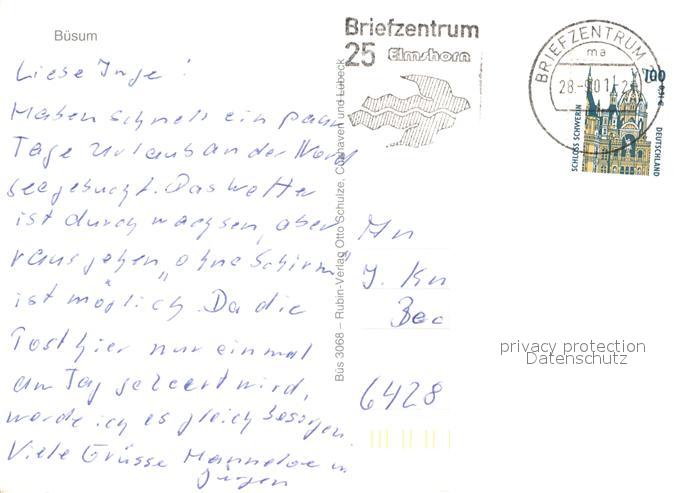 Büsum
Liebe Inge!
Haben schnell ein paar
Tage Urlaub an der Nord
see gebucht. Das Wetter
ist durchwachsen, aber
rausgehen "ohne Schirm"
ist möglich. Da die
Post hier nur einmal
am Tag geleert wird,
werde ich es gleich besorgen.
Viele Grüsse Hannelore u.
Jürgen
Büs 3068 – Rubin-Verlag Otto Schulze, Cuxhaven und Lübeck
Briefzentrum
25 Elmshorn
BRIEFZENTRUM
ma
100
SCHLOSS SCHWERIN
DEUTSCHLAND
An
J. Kn
Bec
6428
privacy protection
Datenschutz